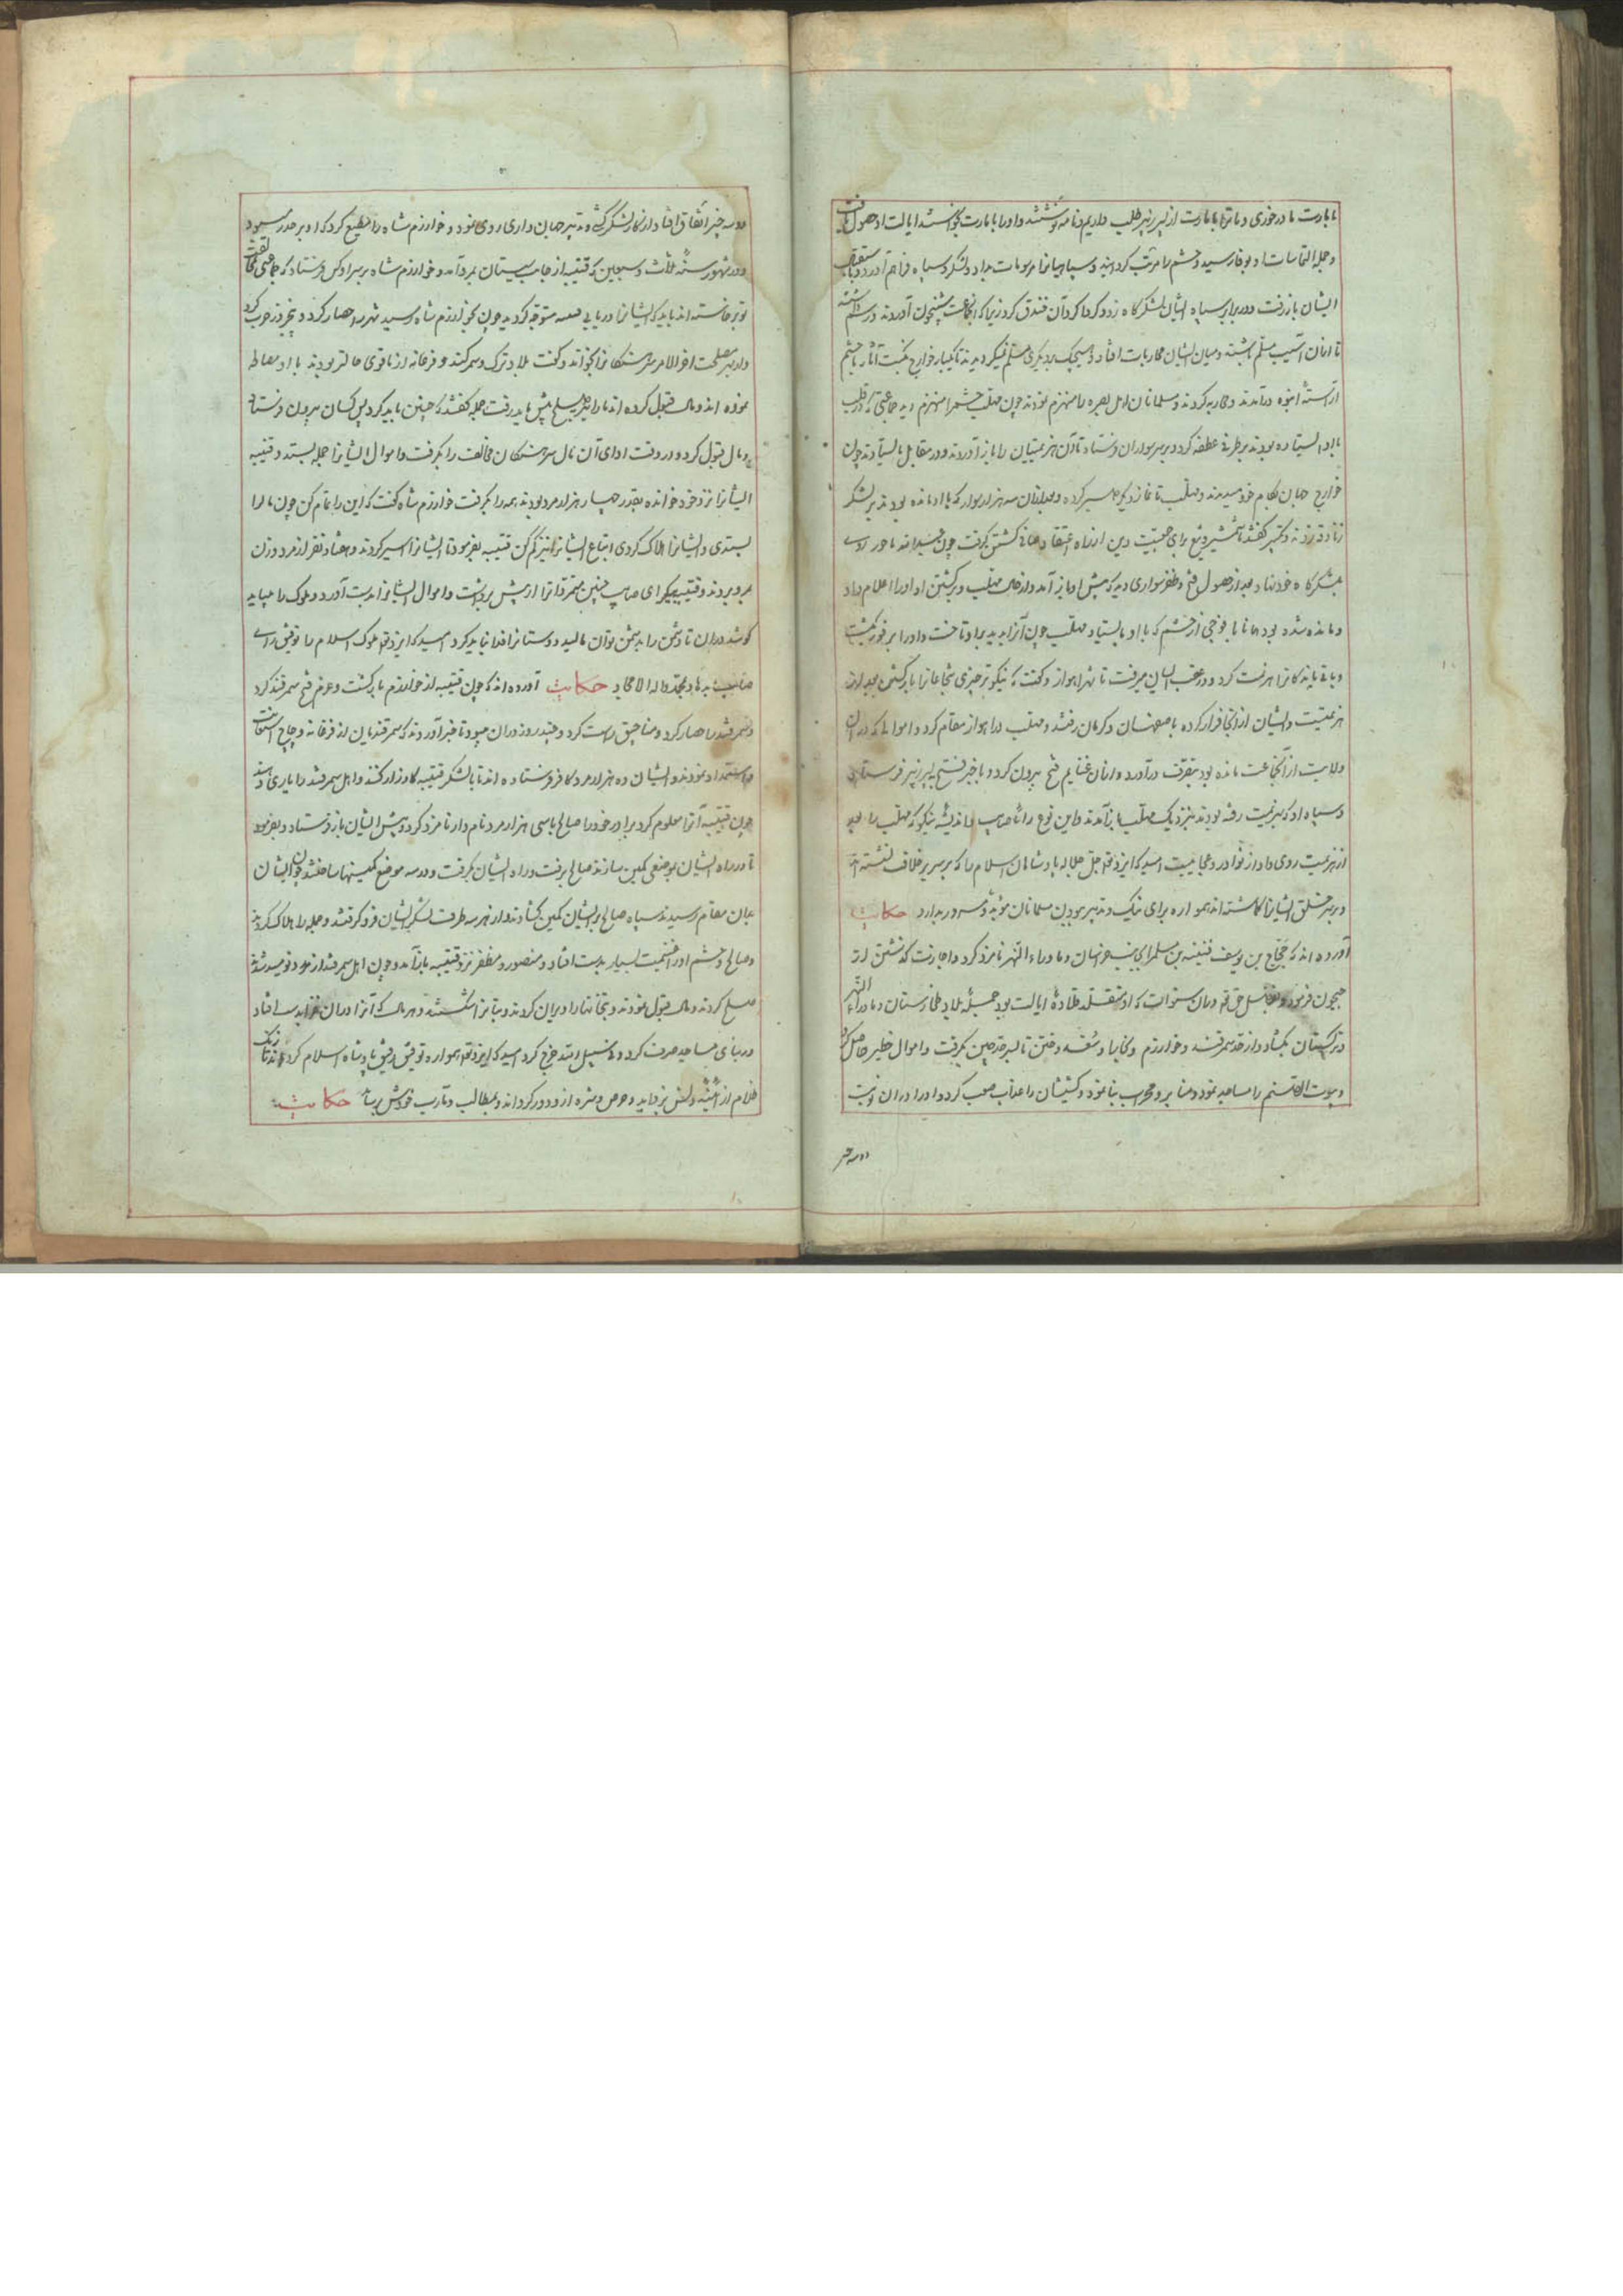 و جمله التماسات او بوفا رسید و حشم را مرتب کردانید و سپاهیانرا مرسومات بداد و لشکر و سپاه فراهم آورد و
ایشان باز رفت و در برابر سپاه ایشان لشکرگاه زد و کرداکرد آن خندق کرد زیرا که انجماعت شبیخون آوردند و
تا از ان آسیب مسلم و میان ایشان محاربات افتاد و هیچیک بر دیکری مسلم نمیکردیدند تا یکبار خوارج
آراسته انبوه درآمدند و محاربه کردند و مسلمانان اهل بصره را منهزم نمودند چون مهلب حشم را منهزم دید جماعتی که در قلب
با او ایستاده بودند بر طرفی عطفه کرد و بر سر سواران فرستاد تا آن هزیمتیان را باز آوردند و در مقابل بایستادند چون
خوارج جهان بکام خود میدیدند و مهلب تا نماز دیکر صبر کرده و بعد از ان سه هزار سوار که با او مانده بودند بر لشکر
زنادقه زدند و تکبیر کفتند تا شمشیر و تیغ برای حمیت دین از راه اعتقاد صافی کشش کرفت چون
بلشکرگاه خود نهاد و بعد از حصول فتح و ظفر سواری دید که پیش او باز آمد و از حال مهلب و برکشتن او او را اعلام داد
و باقی ماندکانرا هزیمت کرد و در عقب ایشان میرفت تا شهر اهواز و کفت که نیکو تر چیزی شجاعانرا باز کشتن بعد از
هزیمتست و ایشان از آنجا فرار کرده باصفهان و کرمان رفتند و مهلب در اهواز مقام کرد و اموالی که در ان
ولایت از آنجماعت مانده بود بتصرف درآورد و از ان غنایم فتح بیرون کرد و با خبر فتح بپسر زبیر فرستاد
و سپاه او که بهزیمت رفته بودند بنزدیک مهلب باز آمدند و این نوع رای صایب و اندیشه نیکو که مهلب را بعد
از هزیمت روی داد از نوادر و عجایبست امید که ایزد تعالی جل جلاله پادشاهان اسلام را که بر سریر خلافت نشسته اند
و بر سر خلق ایشانرا کماشته اند همواره برای نیک و تدبیر بودن مسلمانان مؤید و مسرور بدارد حکایت
آورده اند که حجاج بن یوسف قتیبه بن مسلم را بجانب خراسان و ماوراء النهر نامزد کرد و اجازت کذشتن از
جیحون فرمود و بفضل حق تعالی در ان سنوات که او متقلد قلاده ایالت بود جمله بلاد طخارستان و ماوراء النهر
و ترکستان بکشاد و از حد سمرقند و خوارزم و کاشغر و ختن تا سرحد چین بکرفت و اموال خطیر حاصل کرد
و بیوت الاصنام را مساجد نمود و منابر و محراب بنا نمود و کشیشان را عذاب صعب کرد و او را در ان نوبت
دو سه چیز
دو سه چیز اتفاق افتاد از کار لشکر کشی و تدبیر جهان داری روی نمود و خوارزم شاه را مطیع کرد که او بر حدر
و در شهور سنه ثلث و سبعین که قتیبه از جانب سیستان بمرو آمد و خوارزم شاه بر سر او کس فرستاد که جماعتی مخالفت
تو برخاسته اند باید که ایشانرا دریابی قتیبه متوجه کردید چون بخوارزم شاه رسید شهر را حصار کرد
و از بهر مصلحت آخر الامر سرهنکانرا بخواند و کفت بلاد ترک و سمرقند و فرغانه از ما قوی حالتر بودند با او مصالحه
نموده اند و مال قبول کرده اند ما را نیز بصلح پیش باید رفت جمله کفتند که چنین باید کرد پس کسان بیرون فرستاد
و مال قبول کرد و در وقت ادای آن مال سرهنکان مخالف را بکرفت و اموال ایشانرا جمله بستد و قتیبه
ایشانرا نزد خود خوانده بقدر چهار هزار مرد بودند همه را بکرفت خوارزم شاه کفت که این را تمام کن چون مال را
بستدی و ایشانرا هلاک کردی اتباع ایشانرا نیز کم کن قتیبه بفرمود تا ایشانرا اسیر کردند و هفتاد نفر از مرد و زن
بمرو بردند و قتیبه بیک رای صایب چنین متمردانرا از پیش برداشت و اموال ایشانرا بدست آورد و ملوک را میباید
کوشید در ان تا دشمن را بدشمن توان مالید و دوستانرا فدا نباید کرد امید که ایزد تعالی ملوک اسلام را توفیق رای
صایب بدهاد بمحمد و اله الامجاد حکایت آورده اند که چون قتیبه از خوارزم باز کشت و عزم فتح سمرقند کرد
و سمرقند را حصار کرد و مناجیق راست کرد و چند روز در ان میبود تا خبر آوردند که سمرقندیان از فرغانه و چاچ استعانت
و استمداد نمودند و ایشان ده هزار مرد کافر فرستاده اند تا با لشکر قتیبه کارزار کنند و اهل سمرقند را یاری دهند
چون قتیبه آنرا معلوم کرد برادر خود را صالح با سی هزار مرد نام دار نامزد کرد و پیش ایشان باز فرستاد و بفرمود
تا در راه ایشان بموضعی کمین سازند صالح برفت و راه ایشان بکرفت و در سه موضع کمینها ساختند چون ایشان
بدان مقام رسیدند سپاه صالح بر ایشان کمین بکشادند و از هر سه طرف لشکر ایشان فرو کرفتند و جمله را هلاک کردند
و صالح و حشم او را غنیمت بسیار بدست افتاد و منصور و مظفر نزد قتیبه باز آمد و چون اهل سمرقند از مدد نومید شدند
صلح کردند و مال قبول نمودند و بتخانها را ویران کردند و بتانرا شکستند و هر مال که آنرا در ان بدست افتاد
در بنای مساجد صرف کرد و فی سبیل الله خرج کرد امید که ایزد تعالی همواره توفیق رفیق پادشاه اسلام کرداند تا زنک
ظلام از دلش بزداید و حرص و شره ازو دور کرداند و بمطالب و مآرب خودش برساند حکایت